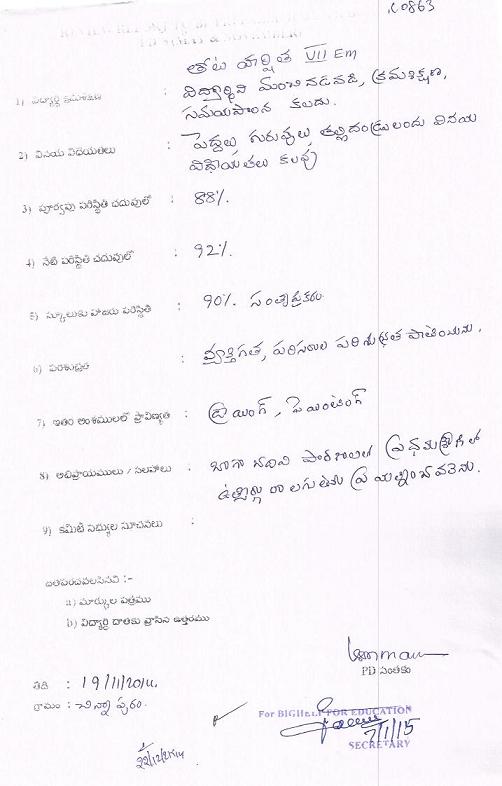 K0863
తోట హర్షిత VII Em
1) విద్యార్థి క్రమశిక్షణ : విద్యార్థిని మంచి నడవడి, క్రమశిక్షణ,
సమయపాలన కలదు.
2) వినయ విధేయతలు : పెద్దలు, గురువులు, తల్లిదండ్రులందు వినయ
విధేయతలు కలవు
3) పూర్వపు పరిస్థితి చదువులో : 88%.
4) నేటి పరిస్థితి చదువులో : 92%.
5) స్కూలుకు హాజరు పరిస్థితి : 90%. సంతృప్తికరం
6) పరిశుభ్రత : వ్యక్తిగత, పరిసరాల పరిశుభ్రత పాటించును.
7) ఇతర అంశములలో ప్రావిణ్యత : డ్రాయింగ్, పెయింటింగ్
8) అభిప్రాయములు / సలహాలు : బాగా చదివి పాఠశాలలో ప్రథమశ్రేణిలో
9) కమిటీ సభ్యుల సూచనలు :
జతపరచవలసినవి :-
a) మార్కుల పత్రము
b) విద్యార్థి దాతకు వ్రాసిన ఉత్తరము
PD సంతకం
తేది : 19/11/2014.
గ్రామం : చిన్నాపురం.
For BIGHELP FOR EDUCATION
7/1/15
SECRETARY
22/12/2014